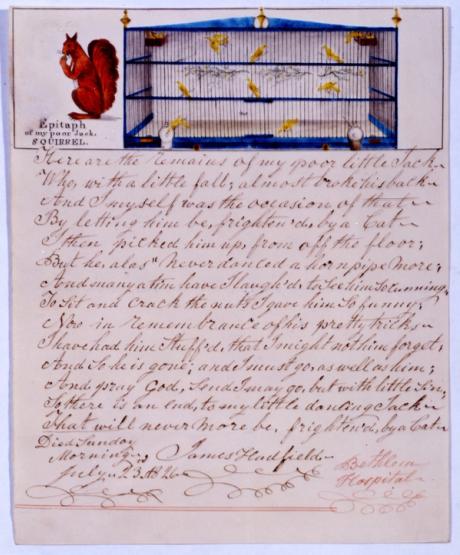 Epitaph
of my poor Jack.
SQUIRREL.
Here are the Remains of my poor little Jack
Who, with a little fall, almost broke his back
And I myself was the occasion of that
By letting him be, frighten'd, by a Cat
I then picked him up, from off the floor,
But he, alas" Never danced a hornpipe more;
And many a time have I laugh'd, to See him So cunning,
To Sit and crack the nuts I gave him So funny;
Now in remembrance of his pretty tricks
I have had him Stuff'd, that I might not him forget,
And So he is gone; and I must go, as well as him;
And pray God, Send I may go, but with little Sin;
So there is an end, to my little dancing Jack
That will never more be, frighten'd, by a Cat
Died Sunday
Morning
July. 23. 1826
James Hadfield
Bethlem
Hospital